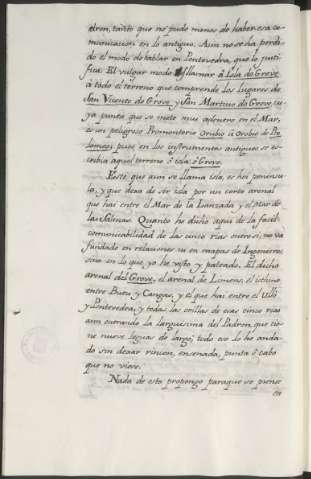 adron, tanto que no pudo menos de haber esa co-
municacion en lo antiguo. Aun no se ha perdi-
do el modo de hablar en Pontevedra, que lo justi-
fica. El vulgar modo llamar à Isla de Grove
à todo el terreno que comprende los lugares de
San Vicente de Grove y San Martino de Grove, cu-
ya punta que se mete muy adentro en el Mar,
es un peligroso Promontorio Orubio ù Orobio de Pto-
lomeo; pues en los instrumentos antiguos se es-
cribia aquel terreno ò isla ò Grove.
Resté que aun se llama isla, es hoi peninsu-
la, y que dexa de ser isla por un corto arenal
que hai entre el Mar de la Lanzada y el Mar de
las Salinas. Quanto he dicho aqui de la facil
comunicabilidad de las cinco rias entre si, no va
fundado en relaciones ni en mapas de Ingenieros,
sino en lo que yo he visto y pateado. El dicho
arenal del Grove, el arenal de Limens, el isthmo
entre Bueu y Cangas, y el que hai entre el Ulló
y Pontevedra, y todas las orillas de esas cinco rias
aun entrando la larguesima del Padron, que tie-
ne nueve leguas de largo, todo eso lo he anda-
do sin dexar rincon, ensenada, punta ò cabo
que no viese.
Nada de esto propongo paraque se piense